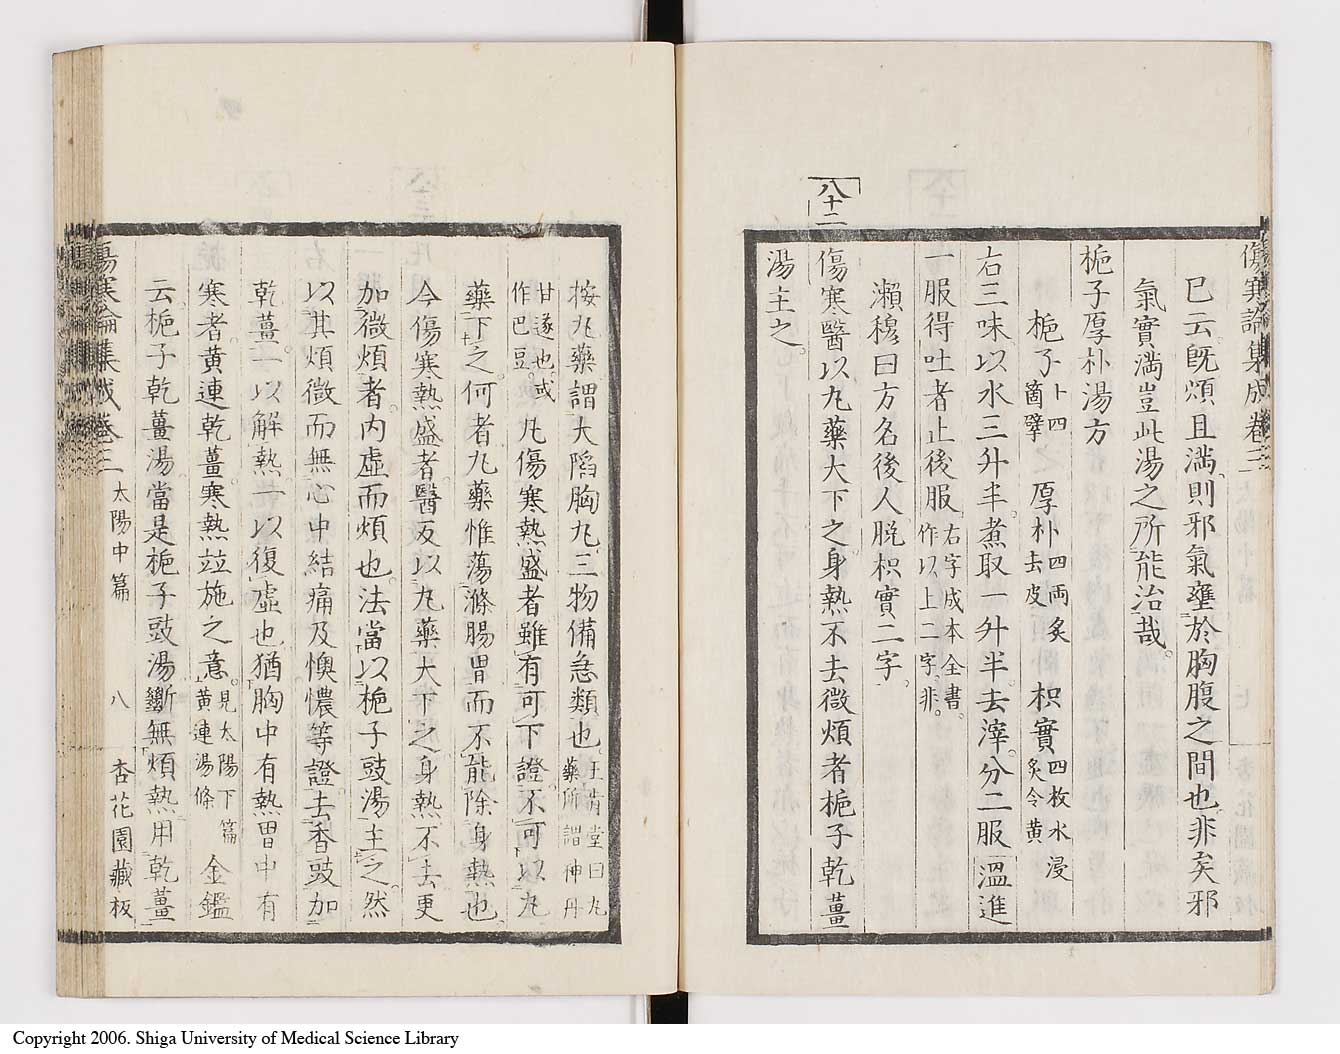 傷寒論集成卷三
已云既煩且満則邪氣壅於胸腹之間也非矣邪
氣實満豈此湯之所能治哉
梔子厚朴湯方
梔子十四箇擘之 厚朴四両炙去皮 枳實四枚水浸炙令黄
右三味以水三升半煮取一升半去滓分二服溫進
一服得吐者止後服右字成本全書作以上二字非
瀬穆曰方名後人脱枳實二字
八十二
傷寒醫以丸藥大下之身熱不去微煩者梔子乾薑
湯主之
按丸藥謂大陷胸丸三物備急類也王肯堂曰丸藥所謂神丹
甘遂也或作巴豆凡傷寒熱盛者雖有可下證不可以丸
藥下之何者丸藥惟蕩滌腸胃而不能除身熱也
今傷寒熱盛者醫反以丸藥大下之身熱不去更
加微煩者内虛而煩也法當以梔子豉湯主之然
以其煩微而無心中結痛及懊憹等證去香豉加
乾薑一以解熱一以復虛也猶胸中有熱胃中有
寒者黄連乾薑寒熱竝施之意見太陽下篇黄連湯條 金鑑
云梔子乾薑湯當是梔子豉湯斷無煩熱用乾薑
傷寒論集成卷三 太陽中篇 八 杏花園藏板
Copyright 2006. Shiga University of Medical Science Library